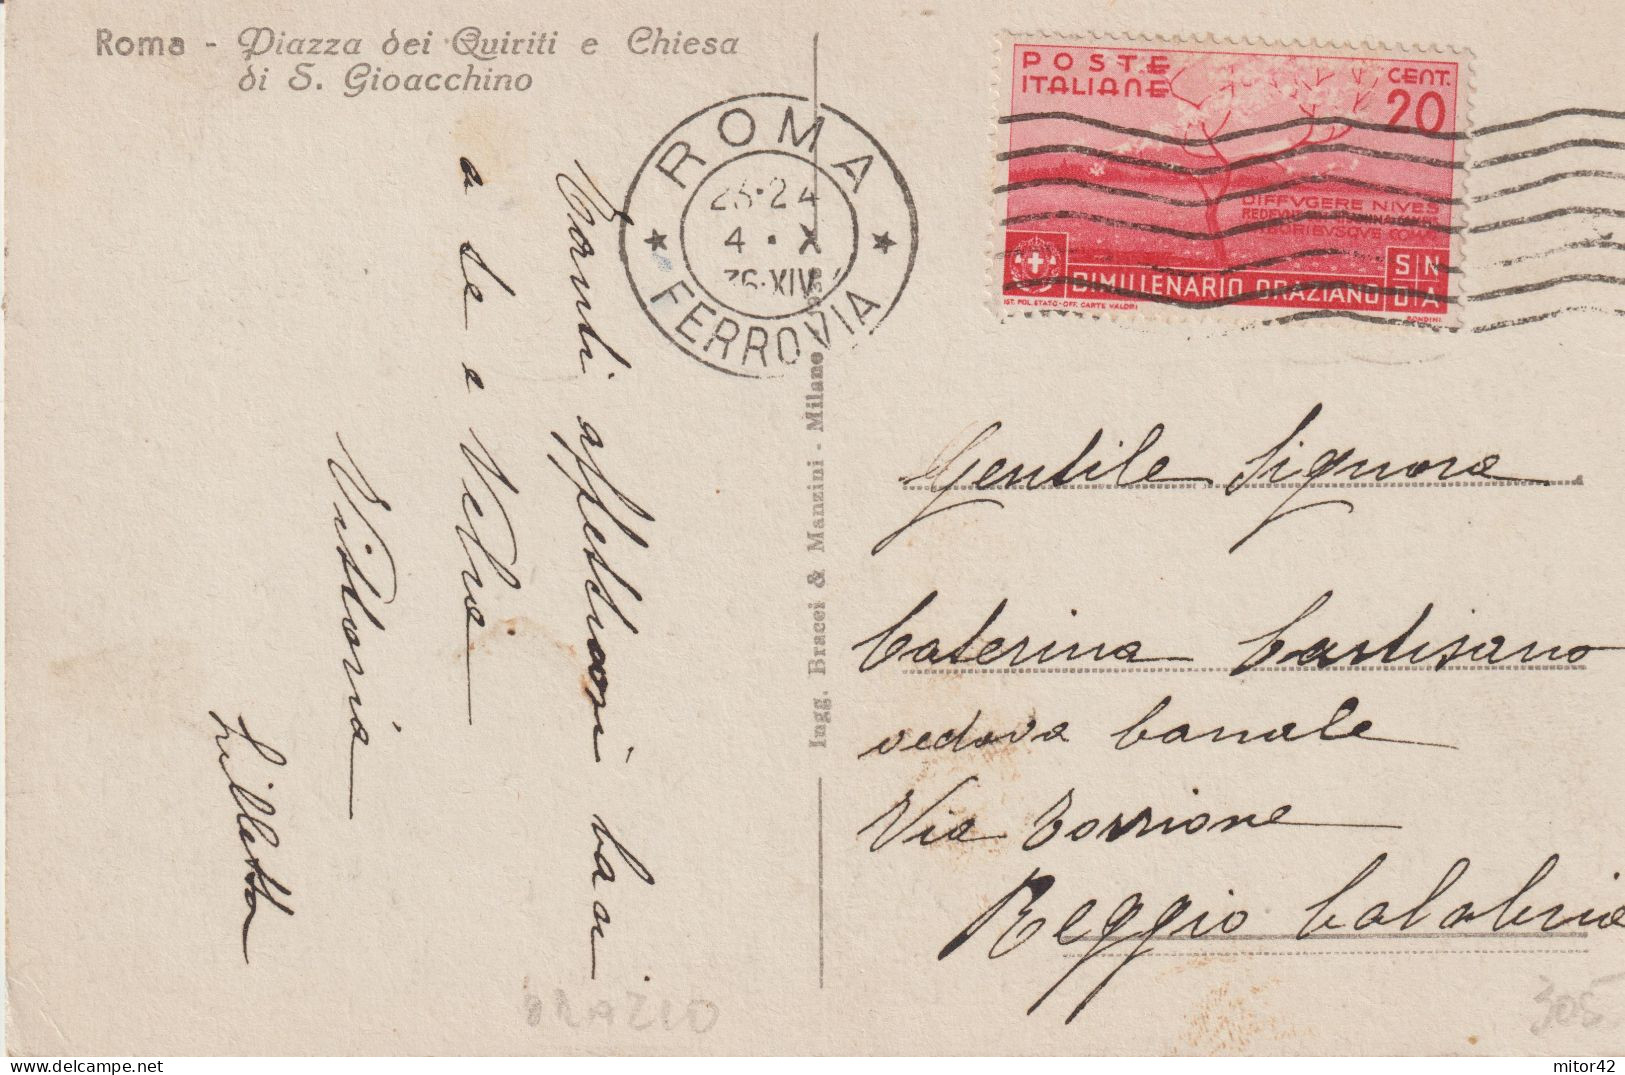 Roma - Piazza dei Quiriti e Chiesa
di S. Gioacchino
ROMA
23-24
4 · X
36·XIV
FERROVIA
POSTE
ITALIANE
CENT.
20
DIFFVGERE NIVES
REDEVNT
ARBORIBVSQVE COMAE
BIMILLENARIO ORAZIANO
S N
D A
IST. POL. STATO-OFF. CARTE VALORI
RONDINI
Ingg. Bracci & Manzini - Milano
Tanti affettuosi baci
a te e Velia
Vittoria
Gentile Signora
Caterina Cartisano
vedova Canale
Via Torrione
Reggio Calabria
ORAZIO
305
mitor42